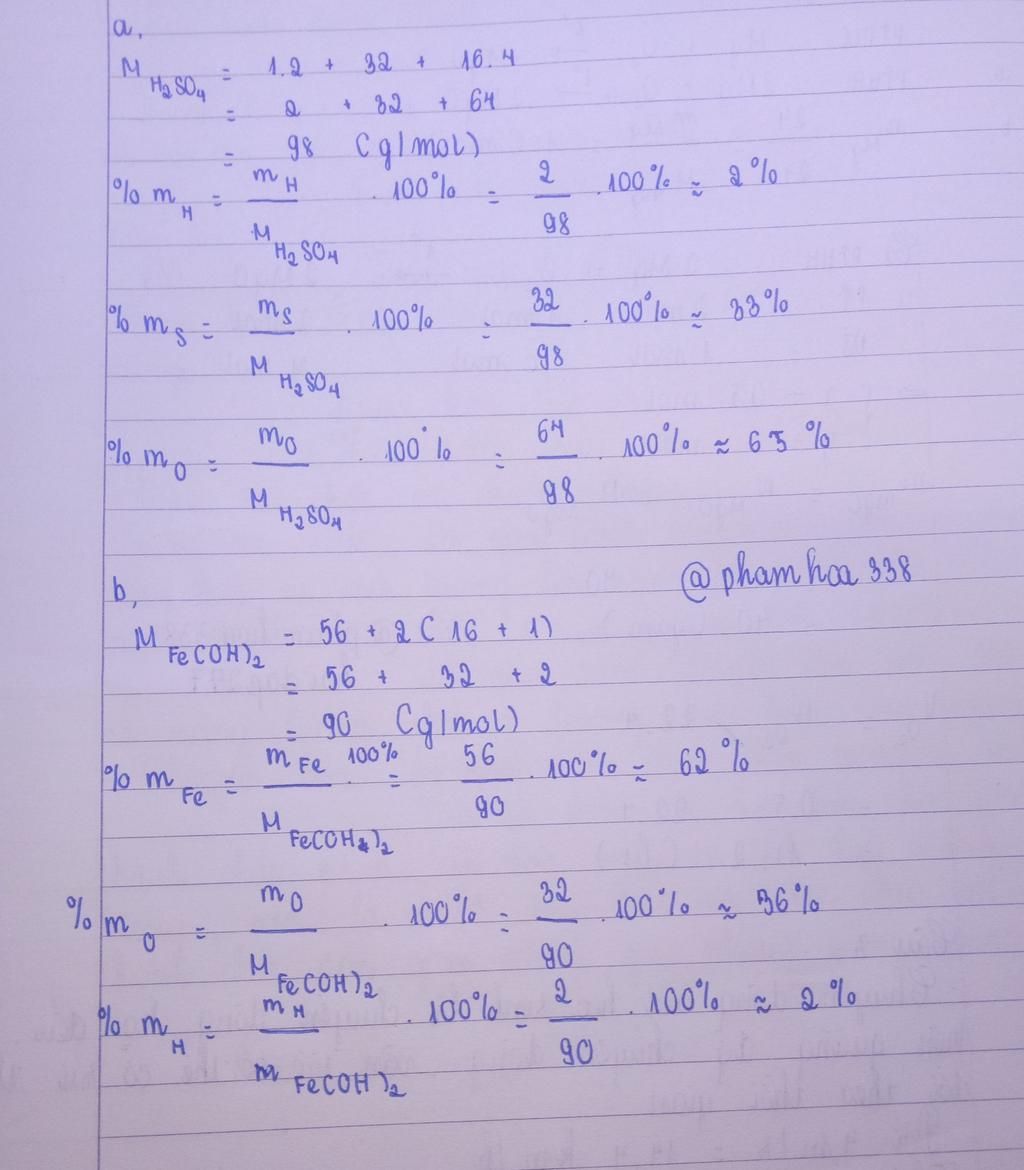 a,
M H₂SO₄ = 1.2 + 32 + 16.4
= 2 + 32 + 64
= 98 (g/mol)
% m H = m H / M H₂SO₄ . 100% = 2 / 98 . 100% ≈ 2%
% m S = m S / M H₂SO₄ . 100% = 32 / 98 . 100% ≈ 33%
% m O = m O / M H₂SO₄ . 100% = 64 / 98 . 100% ≈ 65%
@phamhoa338
b,
M Fe(OH)₂ = 56 + 2(16 + 1)
= 56 + 32 + 2
= 90 (g/mol)
% m Fe = m Fe / M Fe(OH)₂ . 100% = 56 / 90 . 100% ≈ 62%
% m O = m O / M Fe(OH)₂ . 100% = 32 / 90 . 100% ≈ 36%
% m H = m H / m Fe(OH)₂ . 100% = 2 / 90 . 100% ≈ 2%